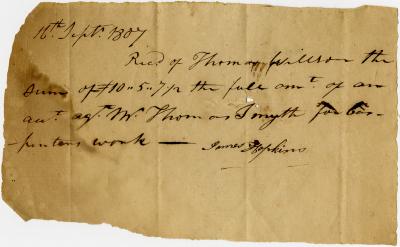 16th Septr. 1807
Recd of Thomas Willson the
sum of £10"5"7½ the full amt. of an
act. agt. Mr. Thomas Smyth for Car-
-penters work —
James Hopkins